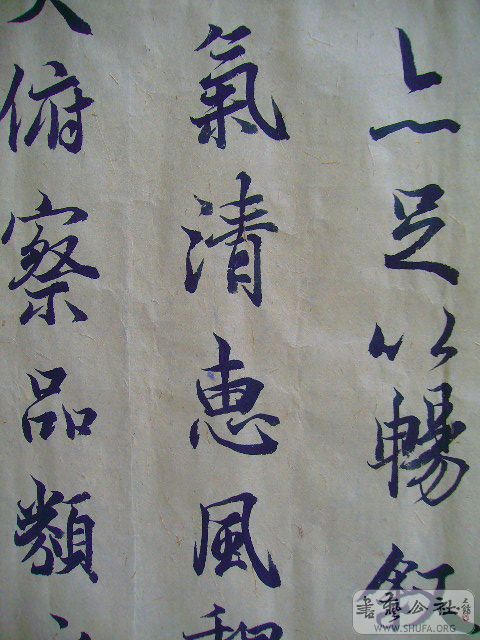 亦足以暢敘
氣清惠風和
大俯察品類之
書藝公社
WWW.SHUFA.ORG